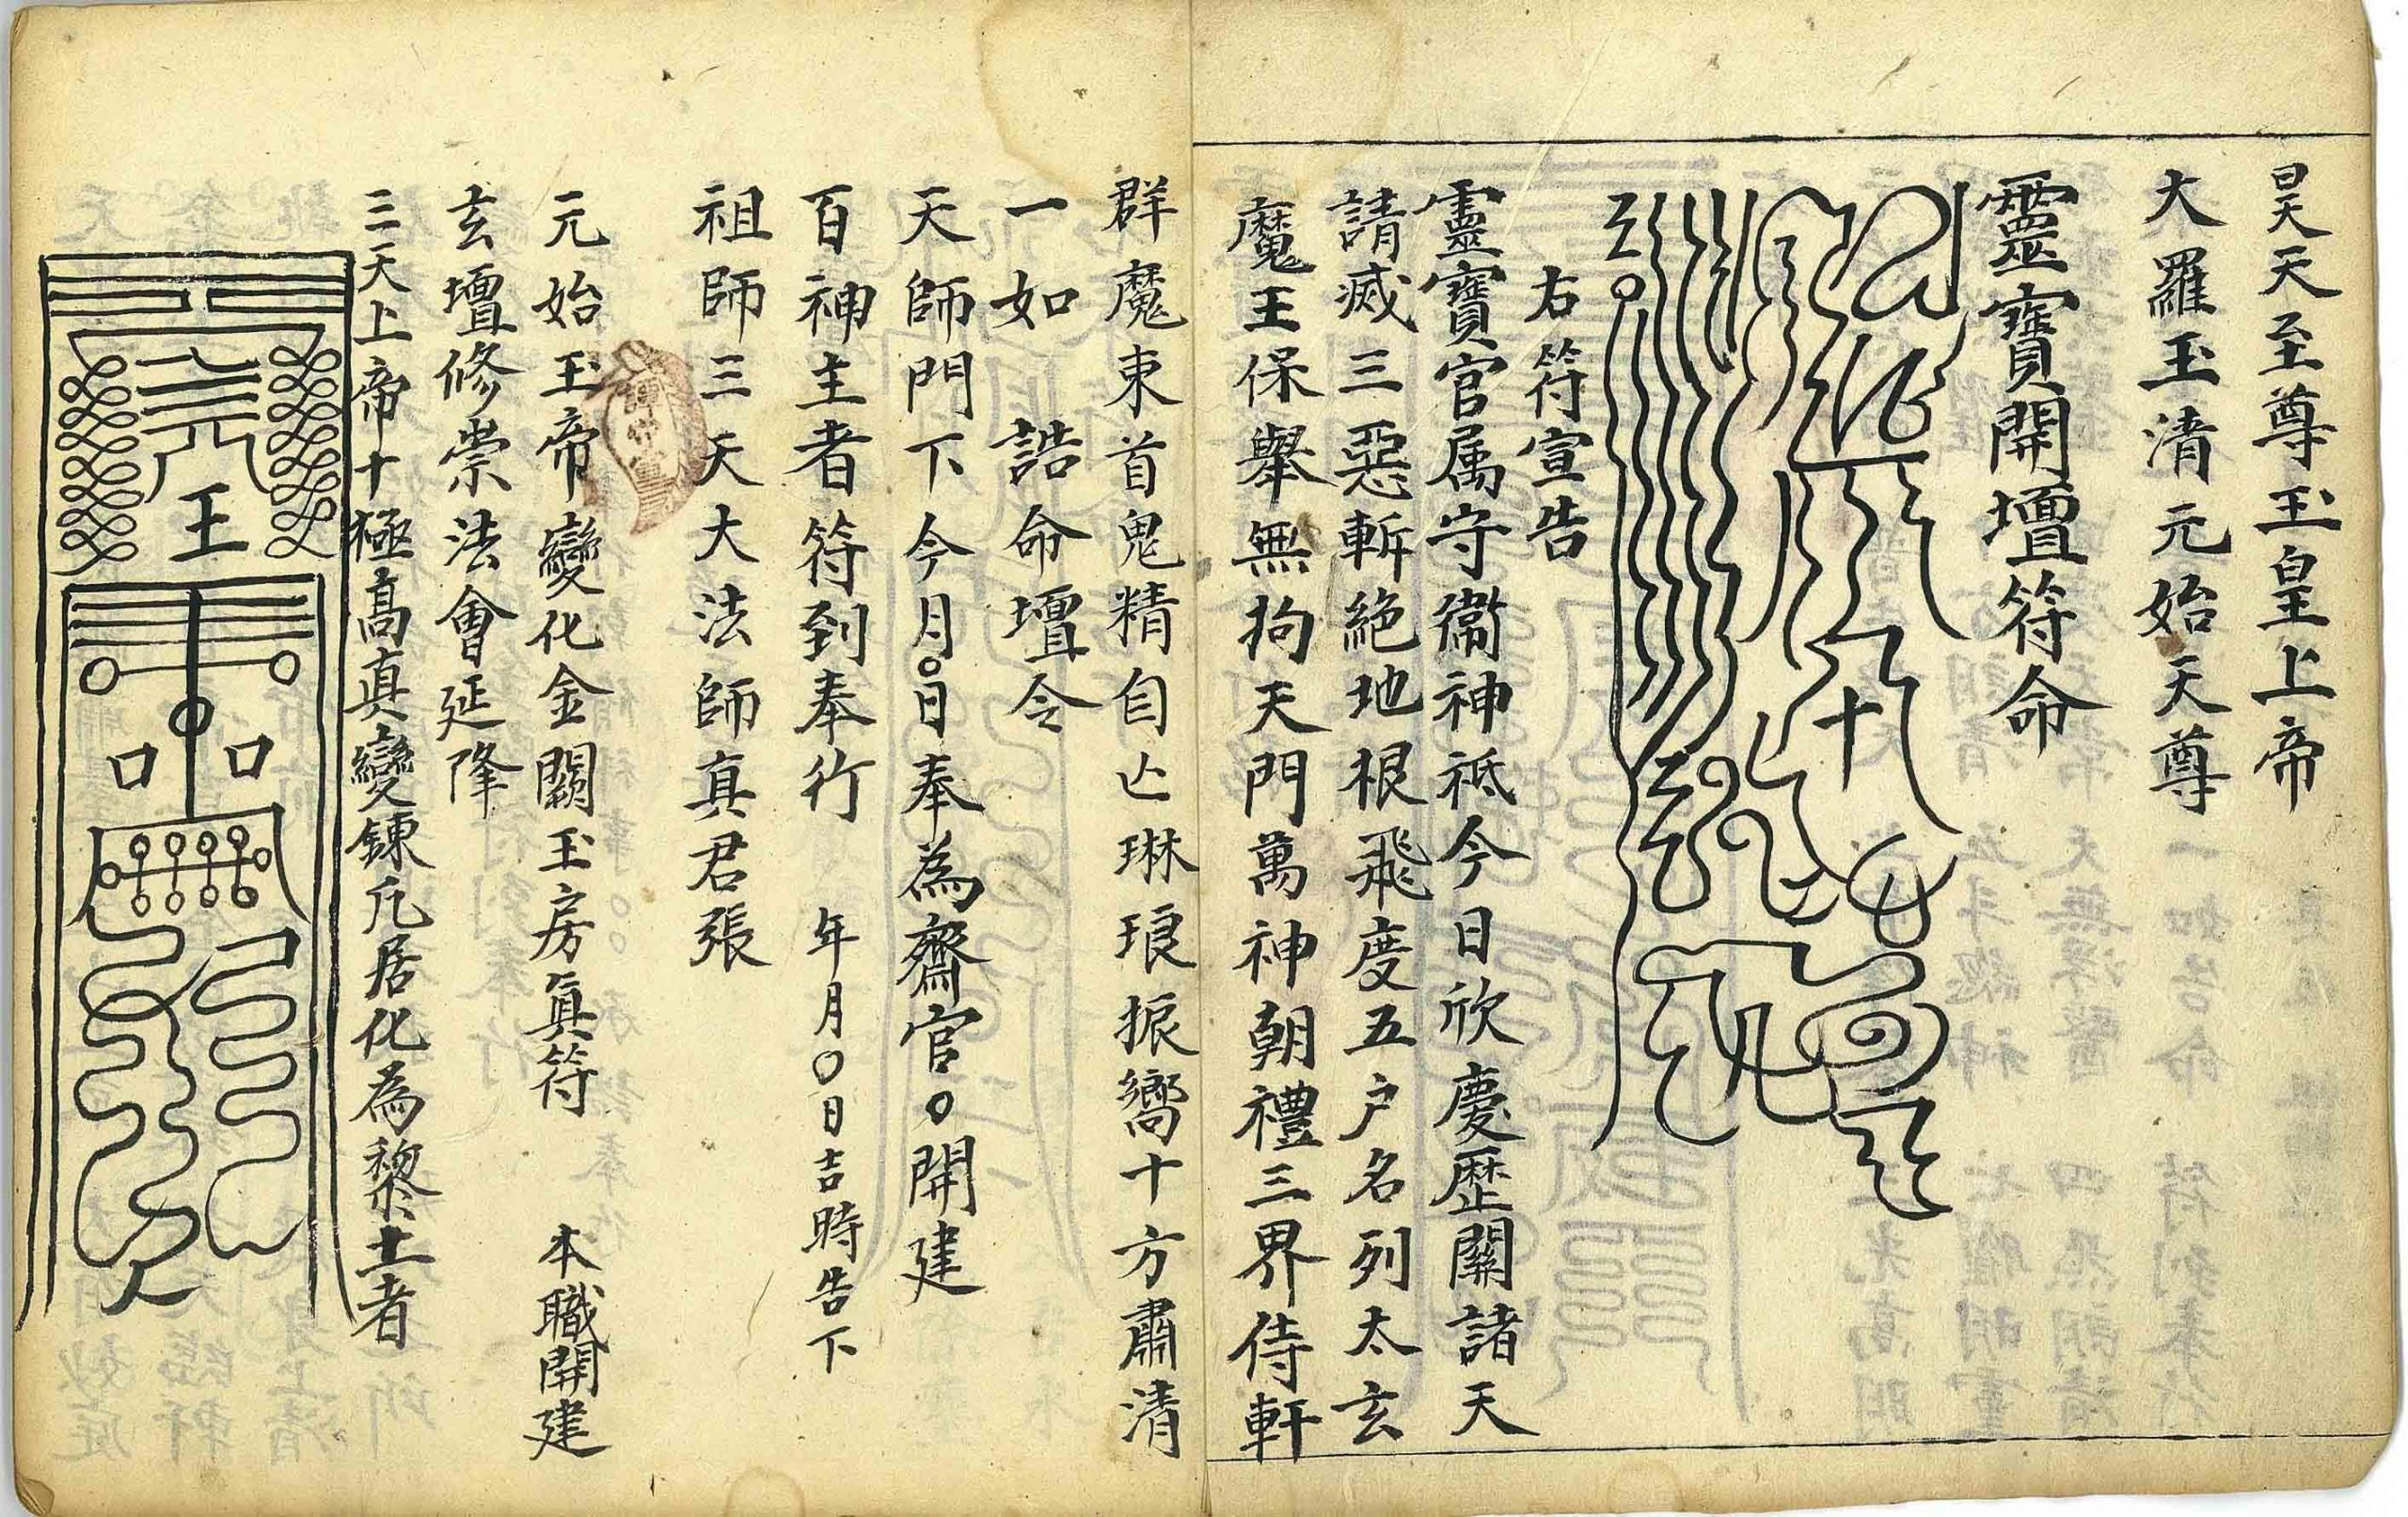 昊天至尊玉皇上帝
大羅玉清元始天尊
靈寶開壇符命
右符宣告
靈寶官属守衛神祇今日欣慶歷關諸天
請滅三惡斬絕地根飛度五户名列太玄
魔王保舉無拘天門萬神朝禮三界侍軒
群魔束首鬼精自亡琳琅振嚮十方肅清
一如 誥命壇令
天師門下今月〇日奉為齋官〇開建
百神主者符到奉行 年月〇日吉時告下
祖師三天大法師真君張
元始玉帝變化金闕玉房真符 本職開建
玄壇修崇法會延降
三天上帝十極高真變鍊凡居化為黎土者